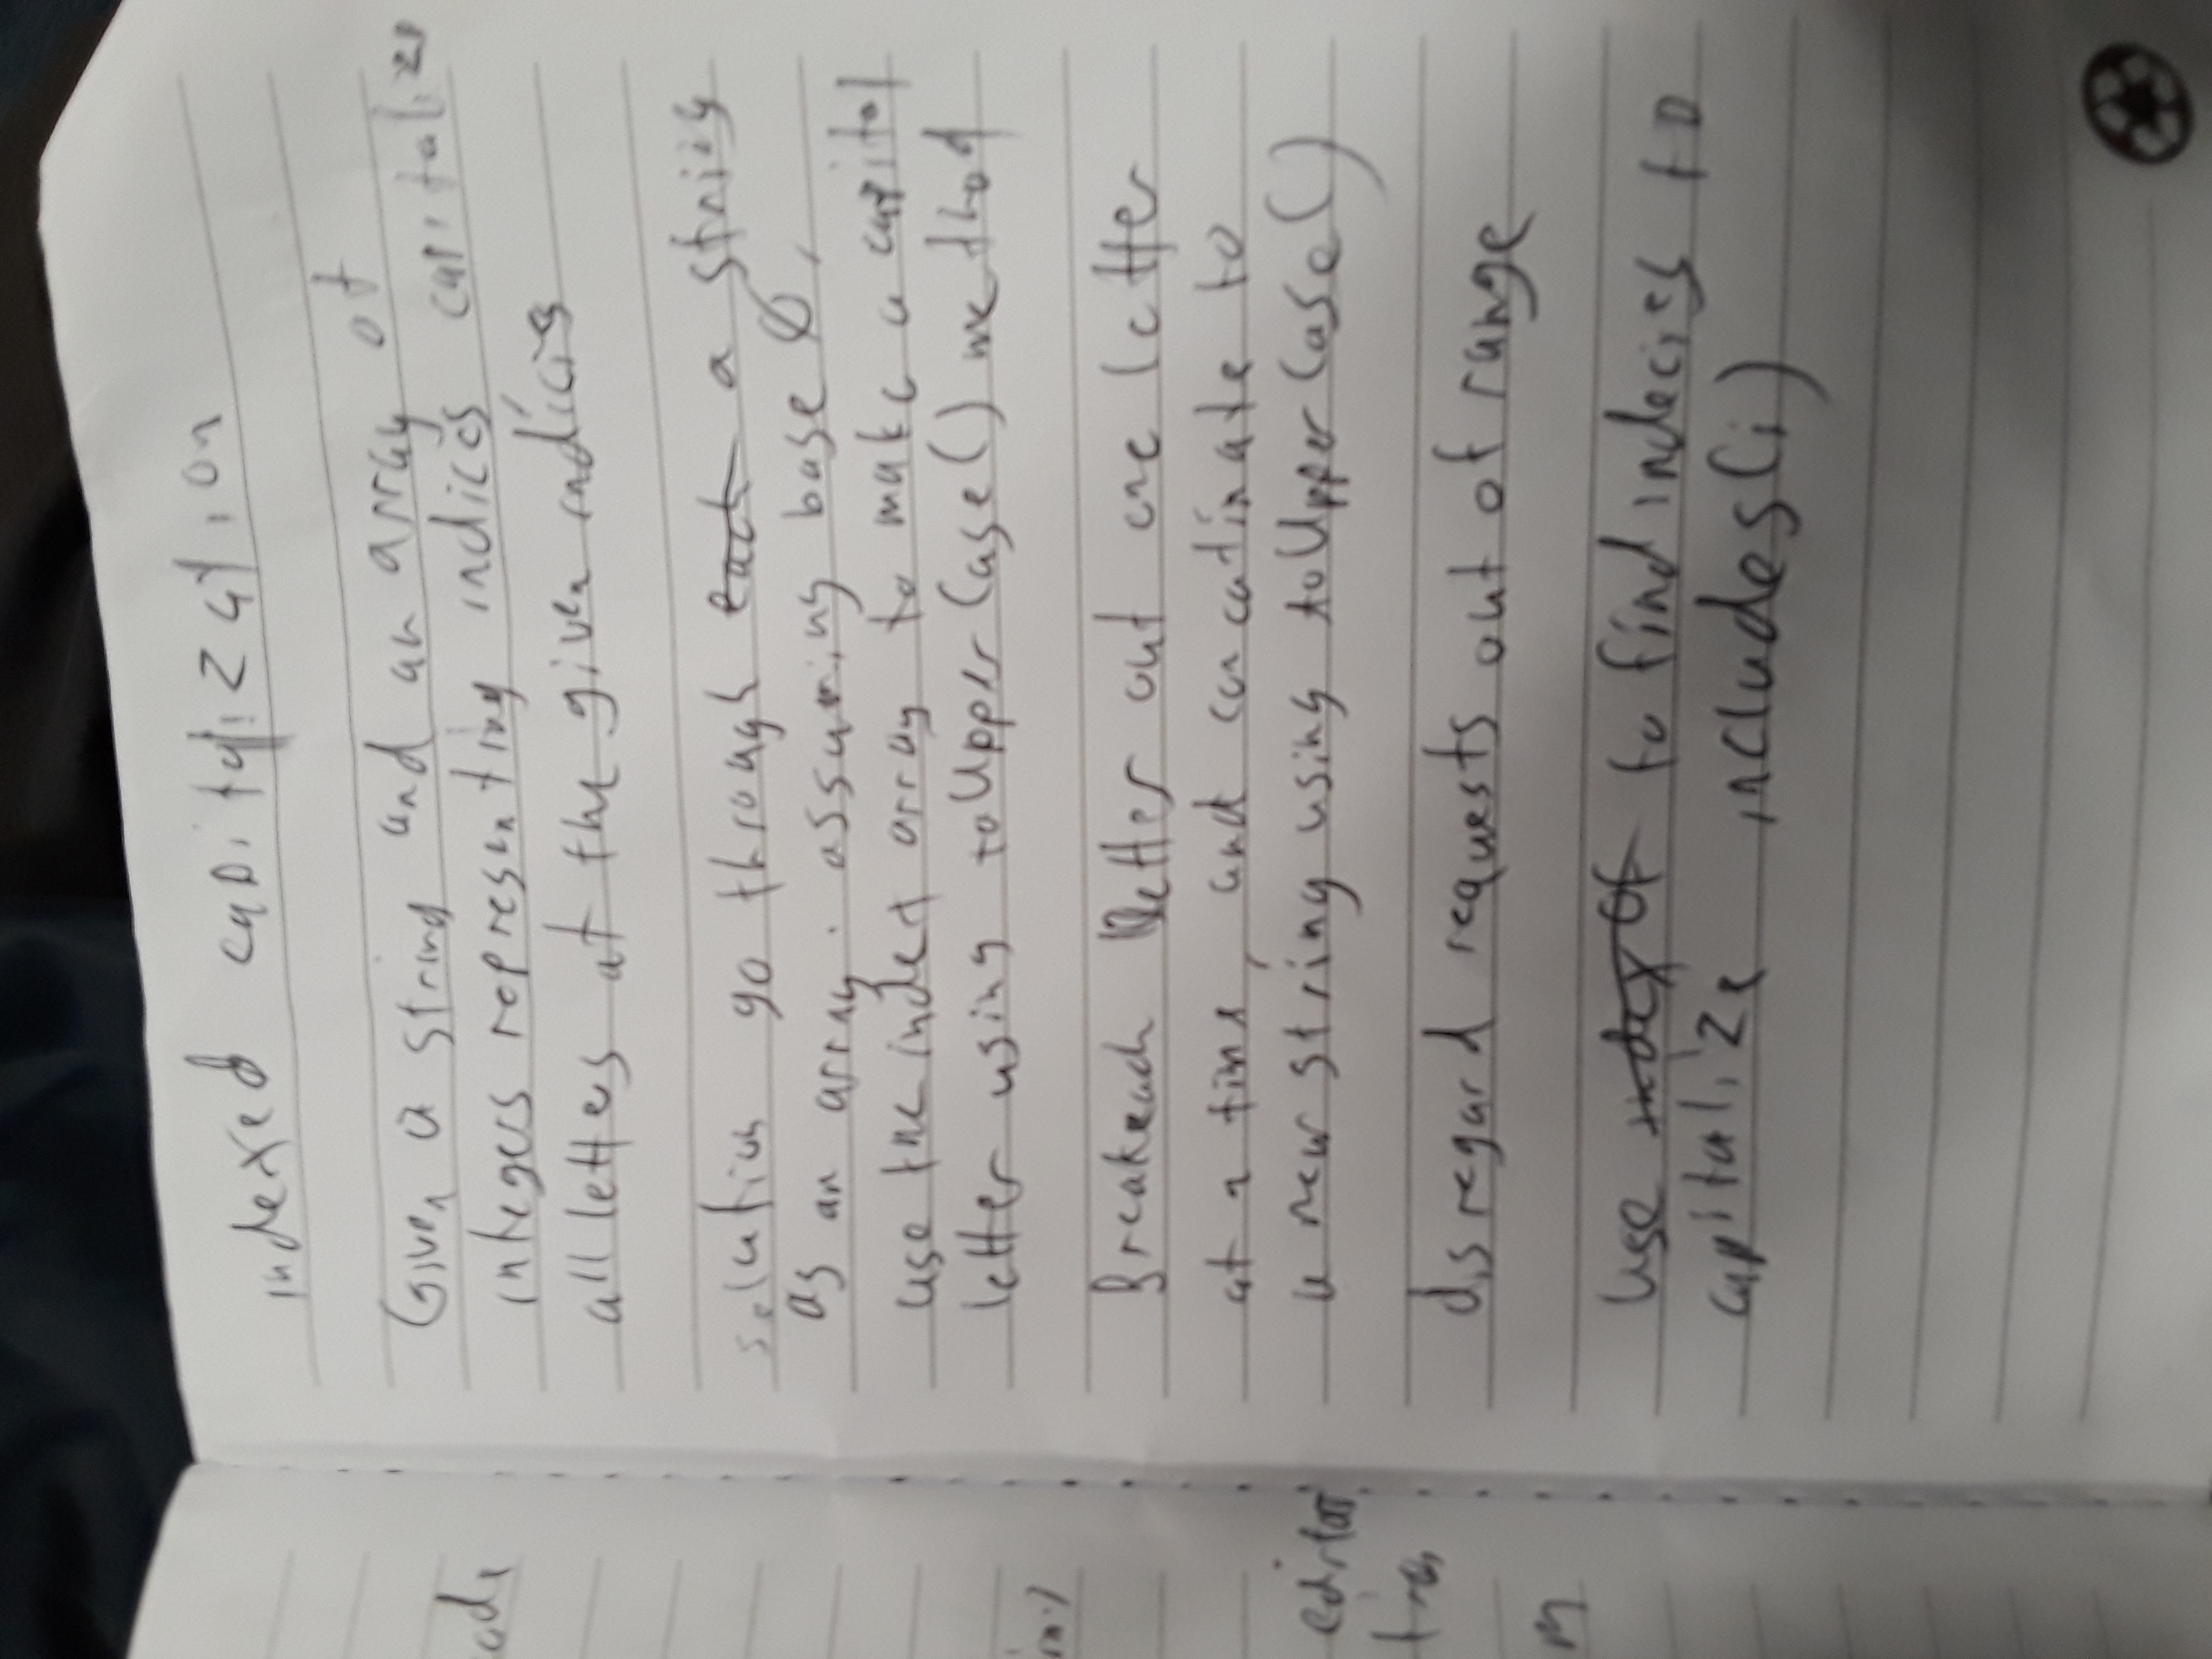 indexed capitalization
Given a string and an array of
integers representing indices capitalize
all letters at the given indicies
solution go through each a string
as an array. assuming base 0,
use the index array to make a capital
letter using toUpperCase() method
Break each letter out one letter
at a time, and concatinate to
a new string using toUpperCase()
disregard requests out of range
use index Of to find indecies to
capitalize includes(i)
editor
m